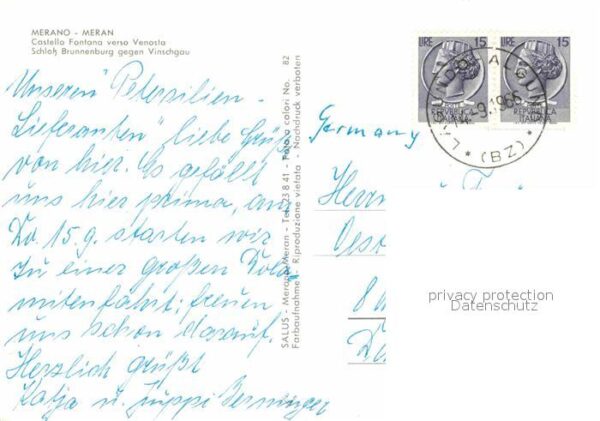 MERANO - MERAN
Castello Fontana verso Venosta
Schloß Brunnenburg gegen Vinschgau
Unseren "Petersilien-
Lieferanten" liebe Grüße
von hier. Es gefällt
uns hier prima, am
Do. 15.9. starten wir
zu einer großen Dolo
mitenfahrt; freuen
uns schon darauf.
Herzlich grüßt
Katja u. Juppi Berninger
SALUS - Merano-Meran - Tel. 23 8 41 - Foto a colori No. 82
Farbaufnahmen - Riproduzione vietata - Nachdruck verboten
LIRE 15
REPUBBLICA
ITALIANA
LIRE 15
REPUBBLICA
ITALIANA
LAGUNDO ALGUND
9.1966
* (BZ) *
Germany
Herrn
Oest
8
privacy protection
Datenschutz